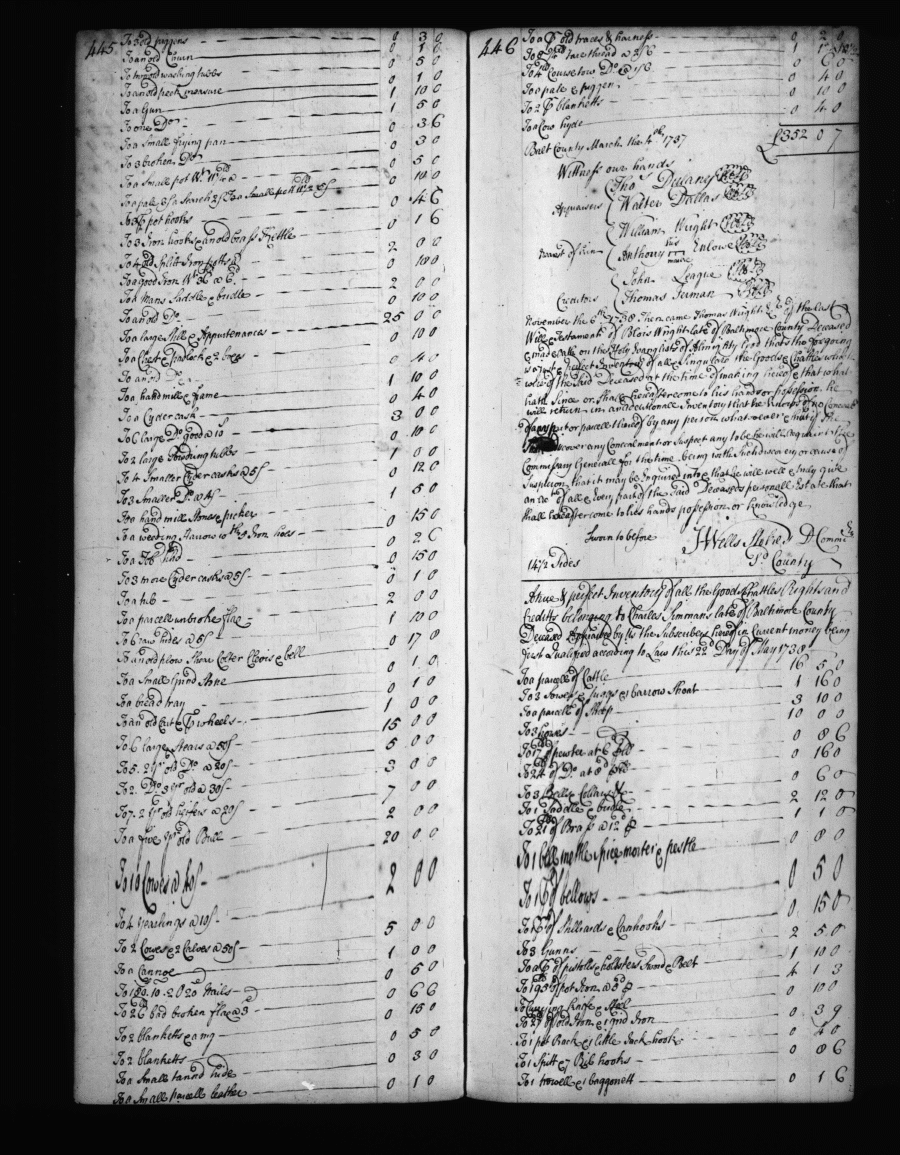 445
To 3 old piggens 0 3 0
To an old Churn 0 1 0
To two old washing tubbs 0 5 0
To an old peck measure 0 1 0
To a Gun 1 10 0
To one Do 1 5 0
To a Small frying pan 0 3 6
To 3 broken Do 0 3 0
To a Small pot 0 5 0
To a pale 3/ a Starch 2/ To a Small pott 0 10 0
To 3 pr pot hooks 0 4 6
To 3 Iron hooks & an old brass Kettle 0 1 6
To 4 old Split Iron potts 2 0 0
To a good Iron Wt 36 @ 6d 0 18 0
To a Mans Saddle & bridle 2 0 0
To an old Do 0 10 0
To a large Still & Appurtenances 25 0 0
To a Chest Padlock & 2 boxes 0 10 0
To an old 0 4 0
To a hand mill & frame 1 10 0
To a Cyder cask 0 4 0
To 6 large Do good @ 10 3 0 0
To 2 large Powdering tubbs 0 10 0
To 4 Smaller Cyder casks @ 5/ 1 0 0
To 3 Smaller Do @ 4/ 0 12 0
To a hand mill Stones & picker 1 5 0
To a weeding Harrow with 3 Iron hoes 0 15 0
To a Hhd 0 2 6
To 3 more Cyder casks @ 5/ 0 15 0
To a tub 0 1 0
To a parcell unbroke flax 2 0 0
To 6 raw hides @ 5/ 1 10 0
To an old plow Share Colter Clevis & bell 0 17 8
To a Small Grind stone 0 1 0
To a bread tray 0 1 0
To an old Cart & pr wheels 1 0 0
To 6 large Steers @ 50/ 15 0 0
To 5. 2 yr old Do @ 20/ 5 0 0
To 2. Do 3 yr old @ 30/ 3 0 0
To 7. 2 yr old heifers @ 20/ 7 0 0
To a five yr old Bull 2 0 0
To 10 Cowes @ 40/ 20 0 0
To 4 yearlings @ 10/ 2 0 0
To 2 Cowes & 2 Calves @ 50/ 5 0 0
To a Cannoe 1 0 0
To 10. 2 & 20d Nails 0 5 0
To 26 bad broken flax @ 3 0 6 6
To 2 blanketts & a rug 0 15 0
To 2 blanketts 0 5 0
To a Small tannd hide 0 3 0
To a Small parcell leather 0 1 0
446
To a pr old traces & harness 0 2 0
To thread @ 2/6
To Course tow Do @ 1/3 0 6 0
To a pale & piggen 0 4 0
To 2 pr blanketts 0 10 0
To a Cow hyde 0 4 0
£352 0 7
Balt County March the 4th 1737
Wittness our hands
Appraisers
Tho Dulaney
Walter Dallas
Nearest of Kin
William Wright
Anthony his mark Enlowe
Creditors
John League
Thomas Jerman
November the 6th 1738 Then came Thomas Wright Exr of the last
Will & Testament of Blois Wright late of Baltimore County Deceased
& made Oath on the Holy Evangelists of Almighty God that the foregoing
is a just & perfect Inventory of all & Singular the Goods & Chattles which
were of the Said Deceased at the time of making hereof & that what
hath Since or Shall hereafter come to his hands or possession he
will return in an additionall Inventory that he knows of no Conceal-
ment or parcell thereof by any person whatsoever & that if he
discover any Concealment or Suspect any to be he will acquaint the
Commissary Generall for the time being with Such discovery or cause of
Suspicion that it may be Enquired into & that he will well & truly give
an acct of all & every part of the Said Deceaseds personall Estate that
Shall hereafter come to his hands possession or Knowledge
Sworn to before
J Wells Stokes D Commry
14 1/2 Sides Bd County
A true & perfect Inventory of all the Goods Chattles Rights and
Creditts belonging to Charles Simmans late of Baltimore County
Deceased Appraised by Us the Subscribers hereof in Current money being
first Qualified according to Law this 22d Day of May 1738
To a parcell of Cattle 16 5 0
To 3 Sowes 2 Piggs & 1 barrow Shoat 1 16 0
To a parcell of Sheep 3 10 0
To 3 horses 10 0 0
To 17 lb of pewter at 6d 0 8 6
To 24 of Do at 8d 0 16 0
To 3 Bells & Collars 0 6 0
To 1 Saddle & bridle 2 12 0
To 21 of Brass @ 12d 1 1 0
To 1 bell mettle Spice morter & pestle 0 8 0
To 1 pr of bellows 0 5 0
To 1 pr of Stilliards & Canhooks 0 15 0
To 3 Gunns 2 5 0
To a pr of pistolls & hollsters Sword & Belt 1 10 0
To 195 of pot Iron @ 5d 4 1 3
To Currying Knife & Steel 0 10 0
To 27 of old Iron & 1 grid Iron 0 3 9
To 1 pot Rack & 1 little Jack hook 0 4 0
To 1 Spitt & 7 Rib hooks 0 8 6
To 1 trowell & 1 baggonett 0 1 6